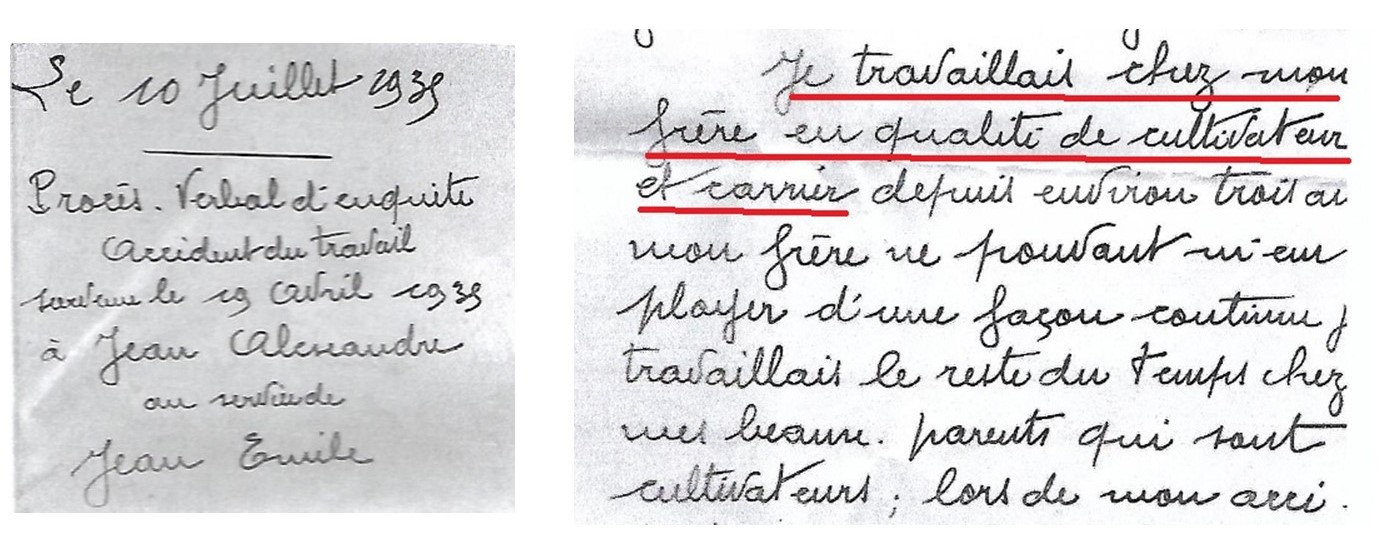 Le 10 Juillet 1939
Procès-Verbal d'enquête
Accident du travail
survenu le 19 Avril 1939
à Jean Alexandre
au service de
Jean Emile
Je travaillais chez mon
frère en qualité de cultivateur
et carrier depuis environ trois an
mon frère ne pouvant m'em
ployer d'une façon continue j
travaillais le reste du temps chez
mes beaux-parents qui sont
cultivateurs ; lors de mon acci-